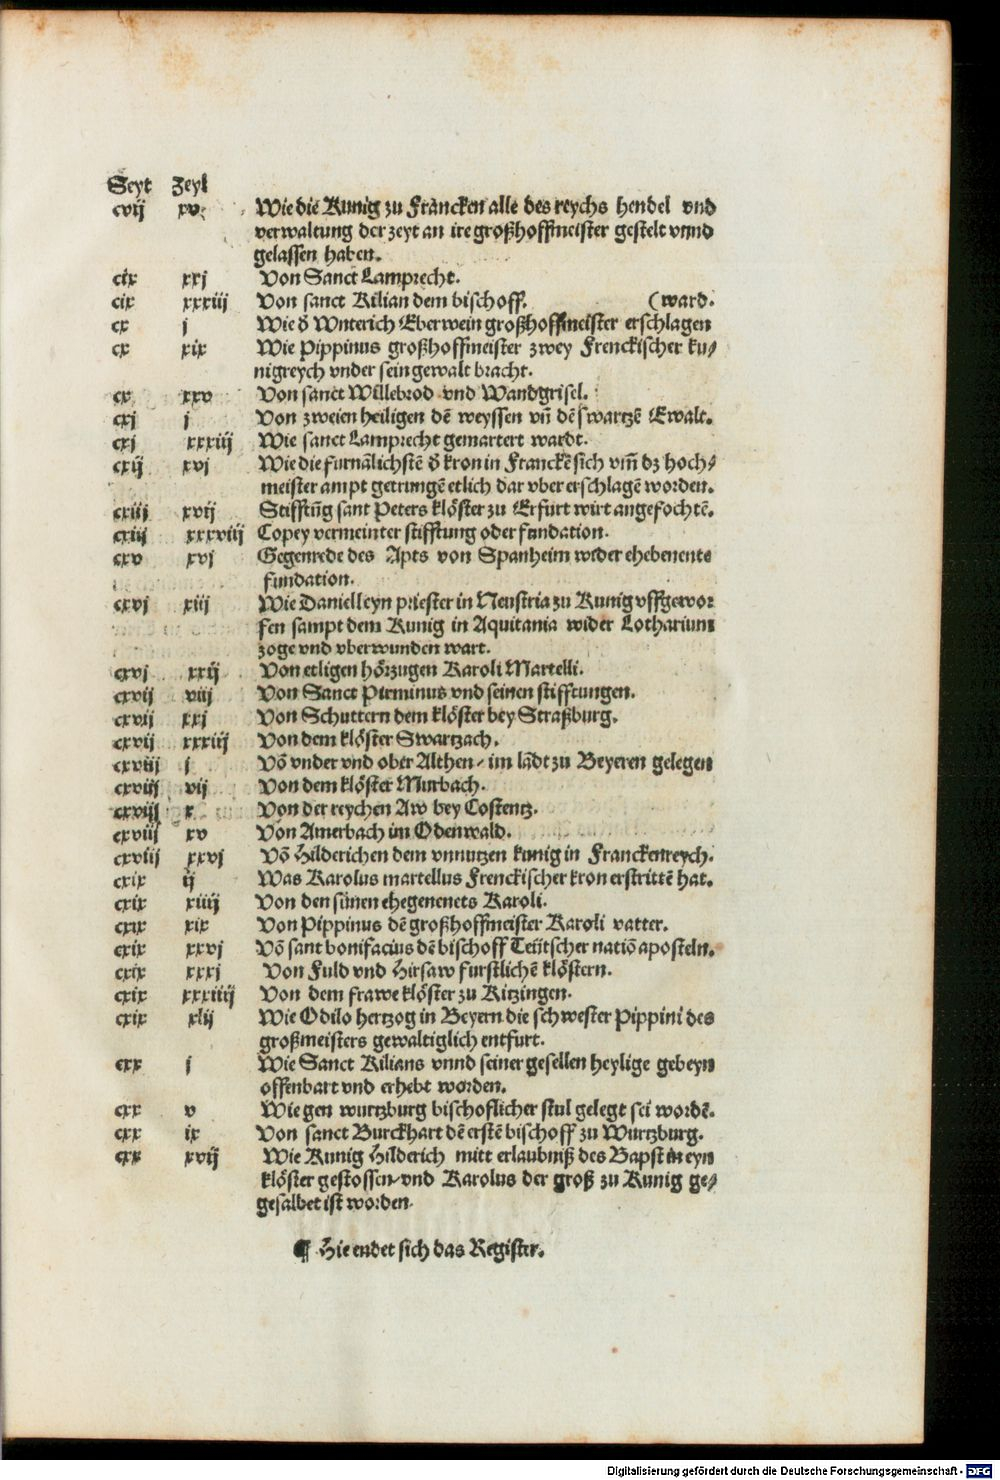 Seyt Zeyl
cvij xv Wie die Kunig zu Francken alle des reychs hendel vnd
verwaltung der zeyt an ire großhoffmeister gestelt vnnd
gelassen haben.
cix xxj Von Sanct Lamprecht.
cix xxxiij Von sanct Kilian dem bischoff. (ward.
cx j Wie d̕ Wnterich Eberwein großhoffmeister erschlagen
cx xix Wie Pippinus großhoffmeister zwey Frenckischer ku⸗
nigreych vnder sein gewalt bracht.
cx xxv Von sanct Willebrod vnd Wandgrisel.
cxj j Von zweien heiligen dē weyssen vñ dē swartzē Ewalt.
cxj xxxiij Wie sanct Lamprecht gemartert wardt.
cxij xvj Wie die furnālichstē d̕ kron in Franckē sich vm̄ dz hoch⸗
meister ampt getrungē etlich dar vber erschlagē worden.
cxiij xvij Stifftūg sant Peters klöster zu Erfurt wirt angefochtē.
cxiij xxxviij Copey vermeinter stifftung oder fundation.
cxv xvj Gegenrede des Apts von Spanheim wider ehebenente
fundation.
cxvj xiij Wie Daniell eyn priester in Neustria zu Kunig vffgewor
fen sampt dem Kunig in Aquitania wider Lotharium
zoge vnd vberwunden wart.
cxvj xxij Von etligen hörzugen Karoli Martelli.
cxvij viij Von Sanct Pirminus vnd seinen stifftungen.
cxvij xxj Von Schuttern dem klöster bey Straßburg.
cxvij xxxiij Von dem klöster Swartzach.
cxviij j Vō vnder vnd ober Althen/ im lādt zu Beyeren gelegen
cxviij vij Von dem klöster Murbach.
cxviij x Von der reychen Aw bey Costentz.
cxviij xv Von Amerbach im Odenwald.
cxviij xxvj Vō Hilderichen dem vnnutzen kunig in Franckenreych.
cxix ij Was Karolus martellus Frenckischer kron erstrittē hat.
cxix xiiij Von den sünen ehegenenets Karoli.
cxix xix Von Pippinus dē großhoffmeister Karoli vatter.
cxix xxvj Vō sant bonifacius dē bischoff Teütscher natiō aposteln.
cxix xxxj Von Fuld vnd Hirsaw furstlichē klöstern.
cxix xxxiiij Von dem frawe klöster zu Kitzingen.
cxix xlij Wie Odilo hertzog in Beyern die schwester Pippini des
großmeisters gewaltiglich entfurt.
cxx j Wie Sanct Kilians vnnd seiner gesellen heylige gebeyn
offenbart vnd erhebt worden.
cxx v Wie gen wurtzburg bischoflicher stul gelegt sei wordē.
cxx ix Von sanct Burckhart dē erstē bischoff zu Wurtzburg.
cxx xvij Wie Kunig Hilderich mitt erlaubniß des Bapst in eyn
klöster gestossen/ vnd Karolus der groß zu Kunig ge⸗
gesalbet ist worden.
¶ Hie endet sich das Register.
Digitalisierung gefördert durch die Deutsche Forschungsgemeinschaft - DFG